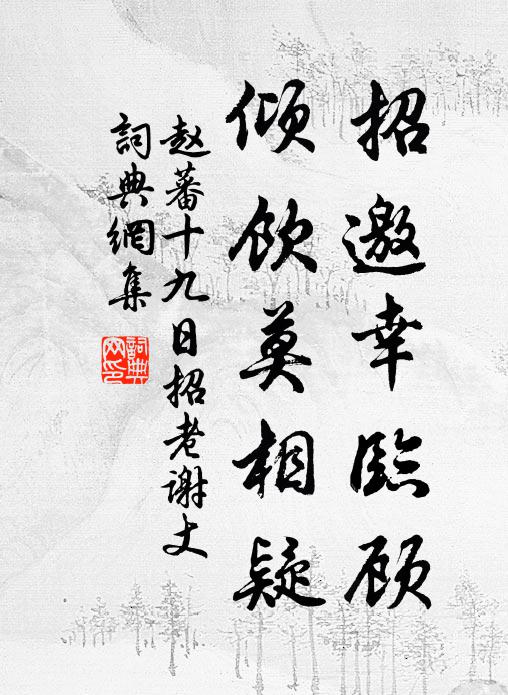 招邀幸臨顾
倾饮莫相疑
赵蕃十九日招老谢丈
詞典網集
詞典網印